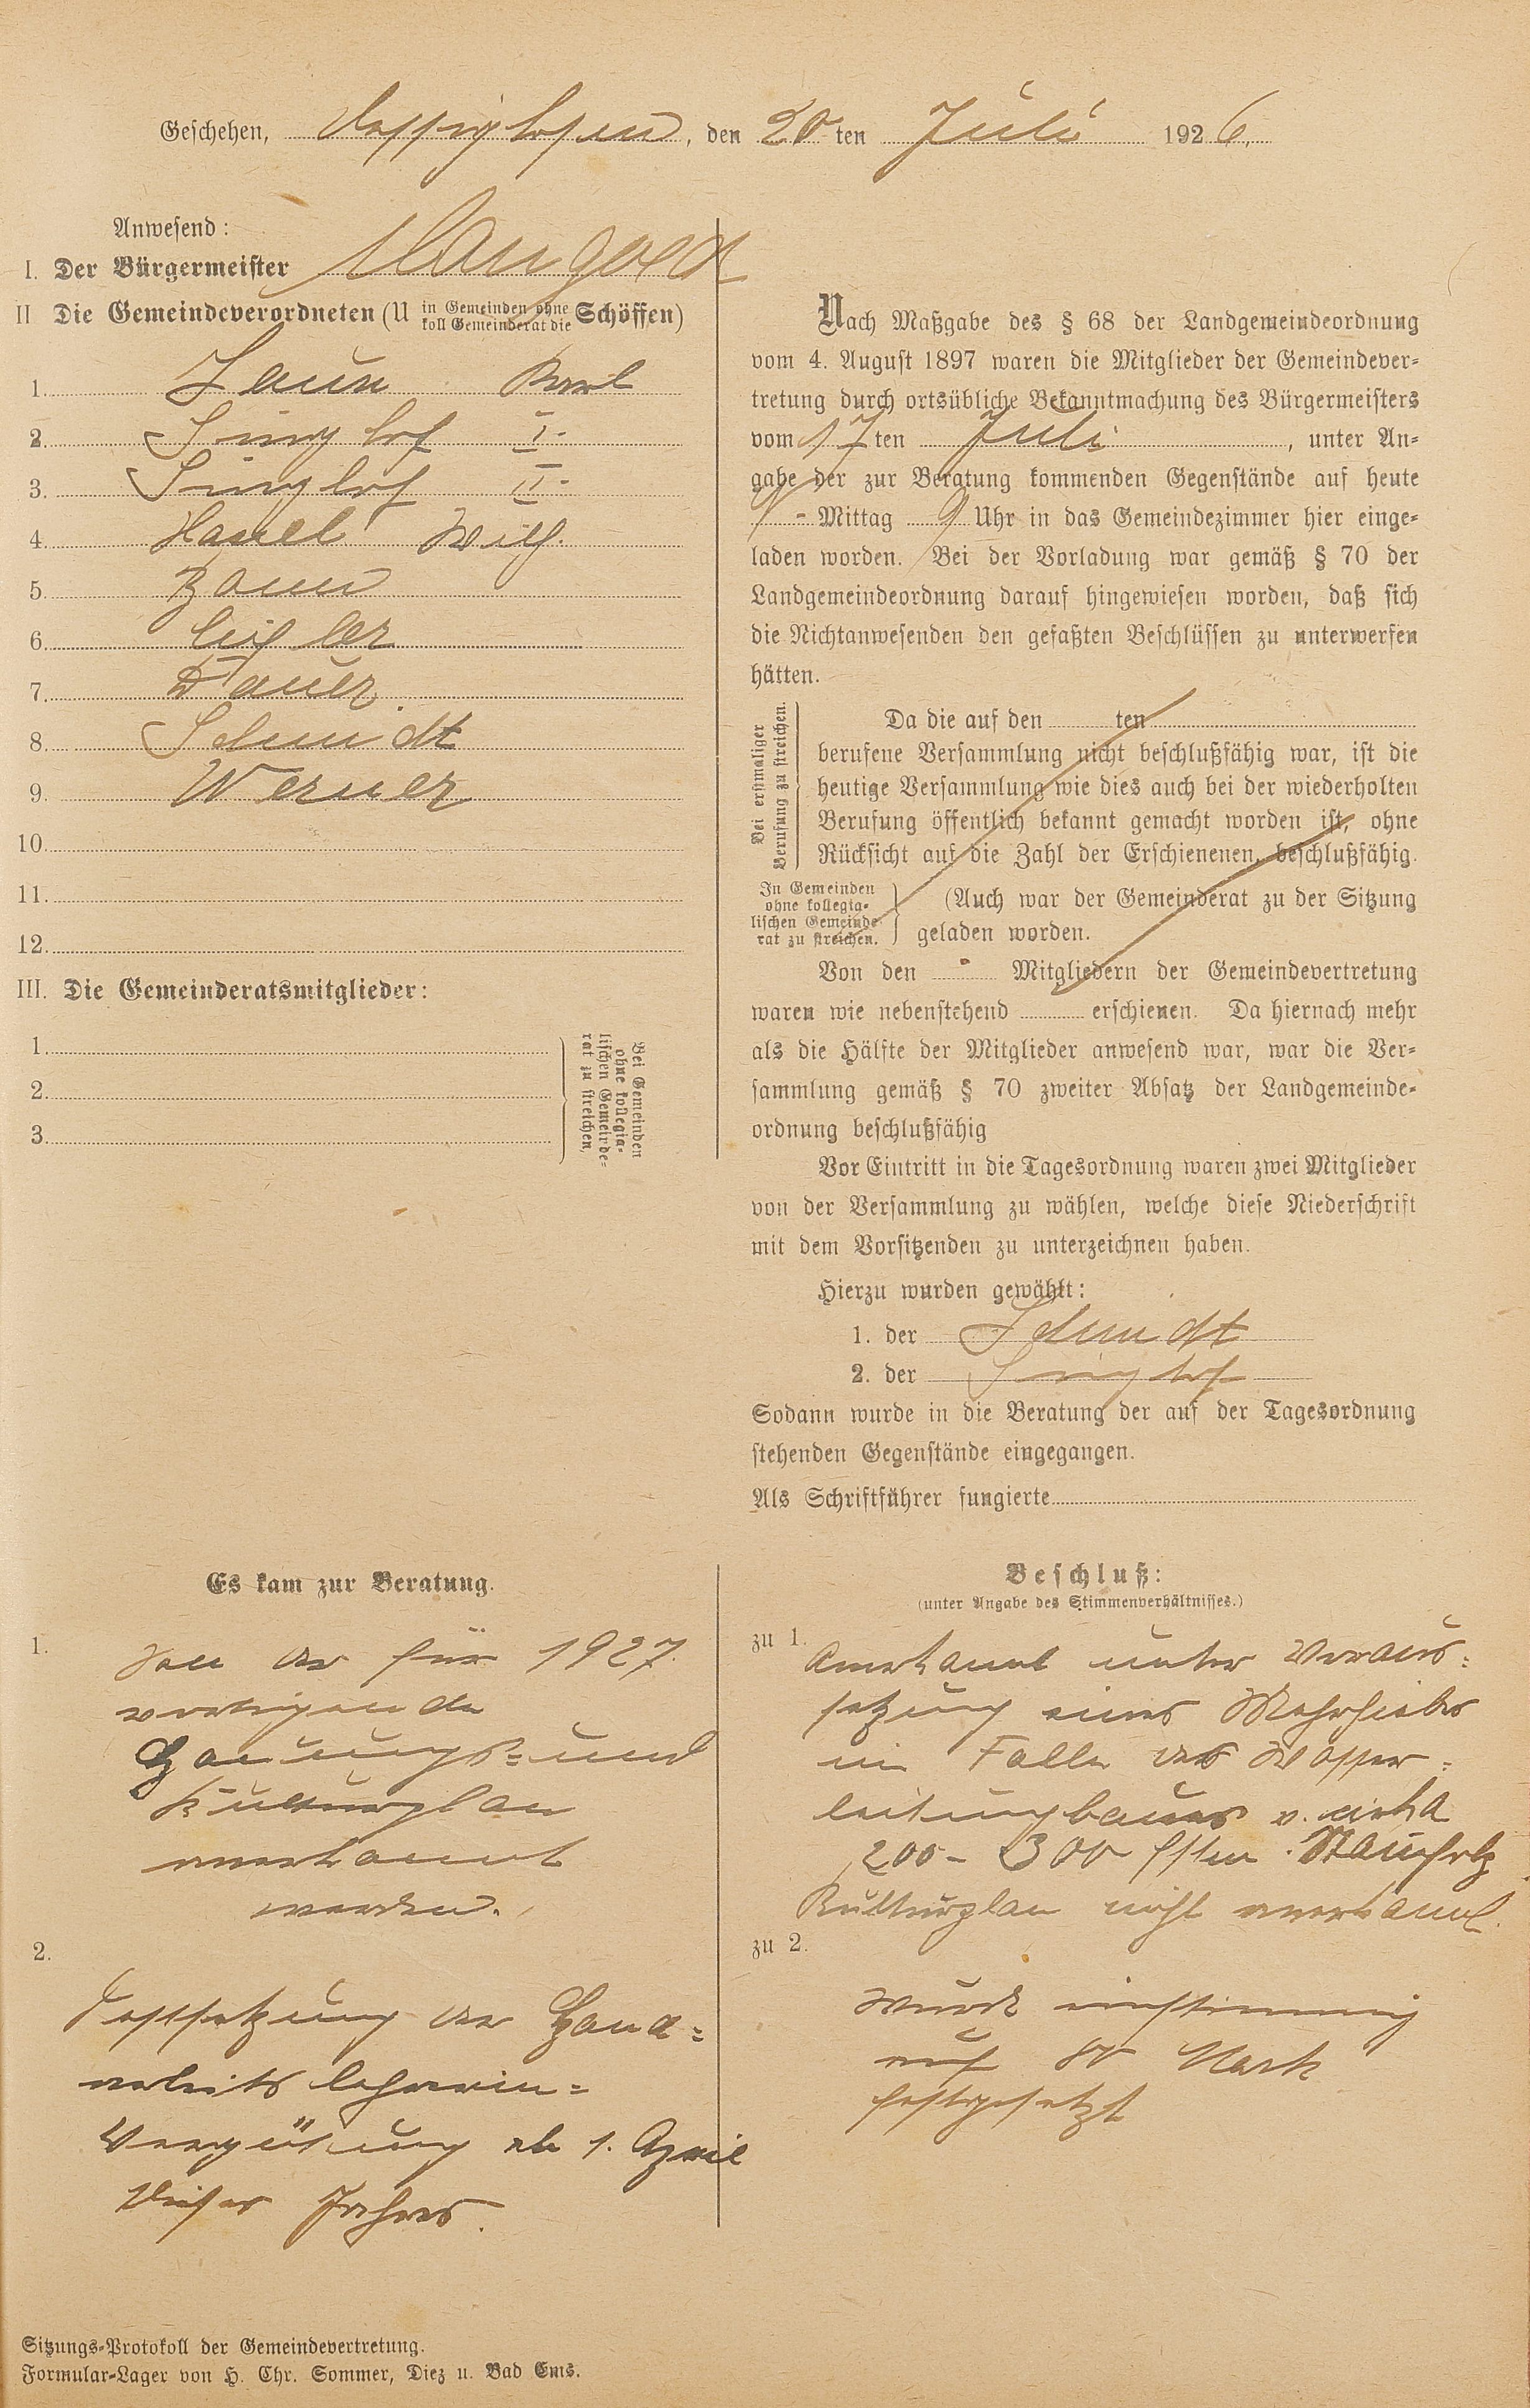 Geschehen, Dessighofen, den 20 ten Juli 1926.
Anwesend:
I. Der Bürgermeister Mangold
II Die Gemeindeverordneten (U in Gemeinden ohne koll Gemeinderat die Schöffen)
1. Zaun Karl
2. Singhof I.
3. Singhof II.
4. Hasel Wilh.
5.
6.
7. Dauer.
8. Schmidt
9. Werner
10.
11.
12.
III. Die Gemeinderatsmitglieder:
1.
2.
3.
Bei Gemeinden
ohne kollegia-
lischen Gemeinde-
rat zu streichen.
Nach Maßgabe des § 68 der Landgemeindeordnung
vom 4. August 1897 waren die Mitglieder der Gemeindever-
tretung durch ortsübliche Bekanntmachung des Bürgermeisters
vom 17 ten Juli, unter An-
gabe der zur Beratung kommenden Gegenstände auf heute
- Mittag 9 Uhr in das Gemeindezimmer hier einge-
laden worden. Bei der Vorladung war gemäß § 70 der
Landgemeindeordnung darauf hingewiesen worden, daß sich
die Nichtanwesenden den gefaßten Beschlüssen zu unterwerfen
hätten.
Bei erstmaliger
Berufung zu streichen.
Da die auf den ten
berufene Versammlung nicht beschlußfähig war, ist die
heutige Versammlung wie dies auch bei der wiederholten
Berufung öffentlich bekannt gemacht worden ist, ohne
Rücksicht auf die Zahl der Erschienenen, beschlußfähig.
In Gemeinden
ohne kollegia-
lischen Gemeinde-
rat zu streichen.
(Auch war der Gemeinderat zu der Sitzung
geladen worden.
Von den - Mitgliedern der Gemeindevertretung
waren wie nebenstehend erschienen. Da hiernach mehr
als die Hälfte der Mitglieder anwesend war, war die Ver-
sammlung gemäß § 70 zweiter Absatz der Landgemeinde-
ordnung beschlußfähig
Vor Eintritt in die Tagesordnung waren zwei Mitglieder
von der Versammlung zu wählen, welche diese Niederschrift
mit dem Vorsitzenden zu unterzeichnen haben.
Hierzu wurden gewählt:
1. der Schmidt
2. der Singhof
Sodann wurde in die Beratung der auf der Tagesordnung
stehenden Gegenstände eingegangen.
Als Schriftführer fungierte
Es kam zur Beratung.
1. Soll der für 1927
vorliegende
Hauungs- und
Kulturplan
anerkannt
werden.
2.
Festsetzung der Hand-
arbeitslehrerin-
Vergütung ab 1. April
dieses Jahres.
Beschluß:
(unter Angabe des Stimmenverhältnisses.)
zu 1. Anerkannt unter Voraus-
setzung eines Mehrhiebes
im Falle des Wasser-
leitungbaues v. cirka
200 - 300 fstm. Stammholz
Kulturplan nicht anerkannt.
zu 2.
Wurde einstimmig
auf 80 Mark
festgesetzt
Sitzungs-Protokoll der Gemeindevertretung.
Formular-Lager von H. Chr. Sommer, Diez u. Bad Ems.